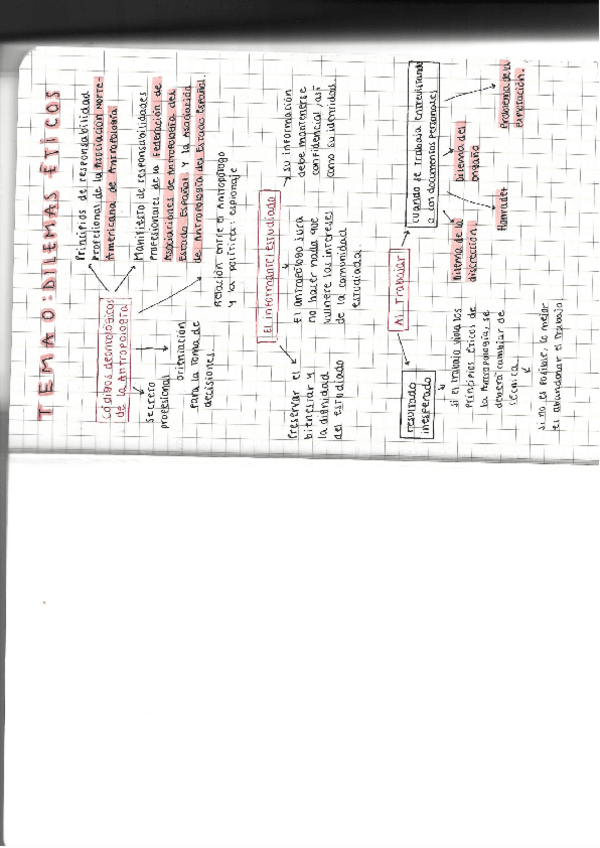 TEMA 0: DILEMAS ÉTICOS
Códigos deontológicos
de la Antropología
Principios de responsabilidad
Profesional de la Asociación Norte-
Americana de Antropología
Manifiesto de responsabilidades
Profesionales de la Federación de
Asociaciones de Antropología del
Estado Español y la Asociación
de Antropología del Estado Español.
Relación entre el Antropólogo
y la política: espionaje
Secreto
profesional
orientación
para la toma de
decisiones.
El informante/estudiado
Preservar el
bienestar y
la dignidad
del estudiado
El antropólogo jura
no hacer nada que
vulnere los intereses
de la comunidad
estudiada
su información
debe mantenerse
confidencial, así
como su identidad
Al trabajar
resultado
inesperado
si el trabajo viola los
Principios éticos de
la Antropología, se
deberá cambiar de
técnica
si no es posible, lo mejor
es abandonar el trabajo
cuando se trabaja entrevistando
o con documentos personales
Dilema de la
discreción.
Dilema del
engaño
Honradez
Problema de la
explotación.